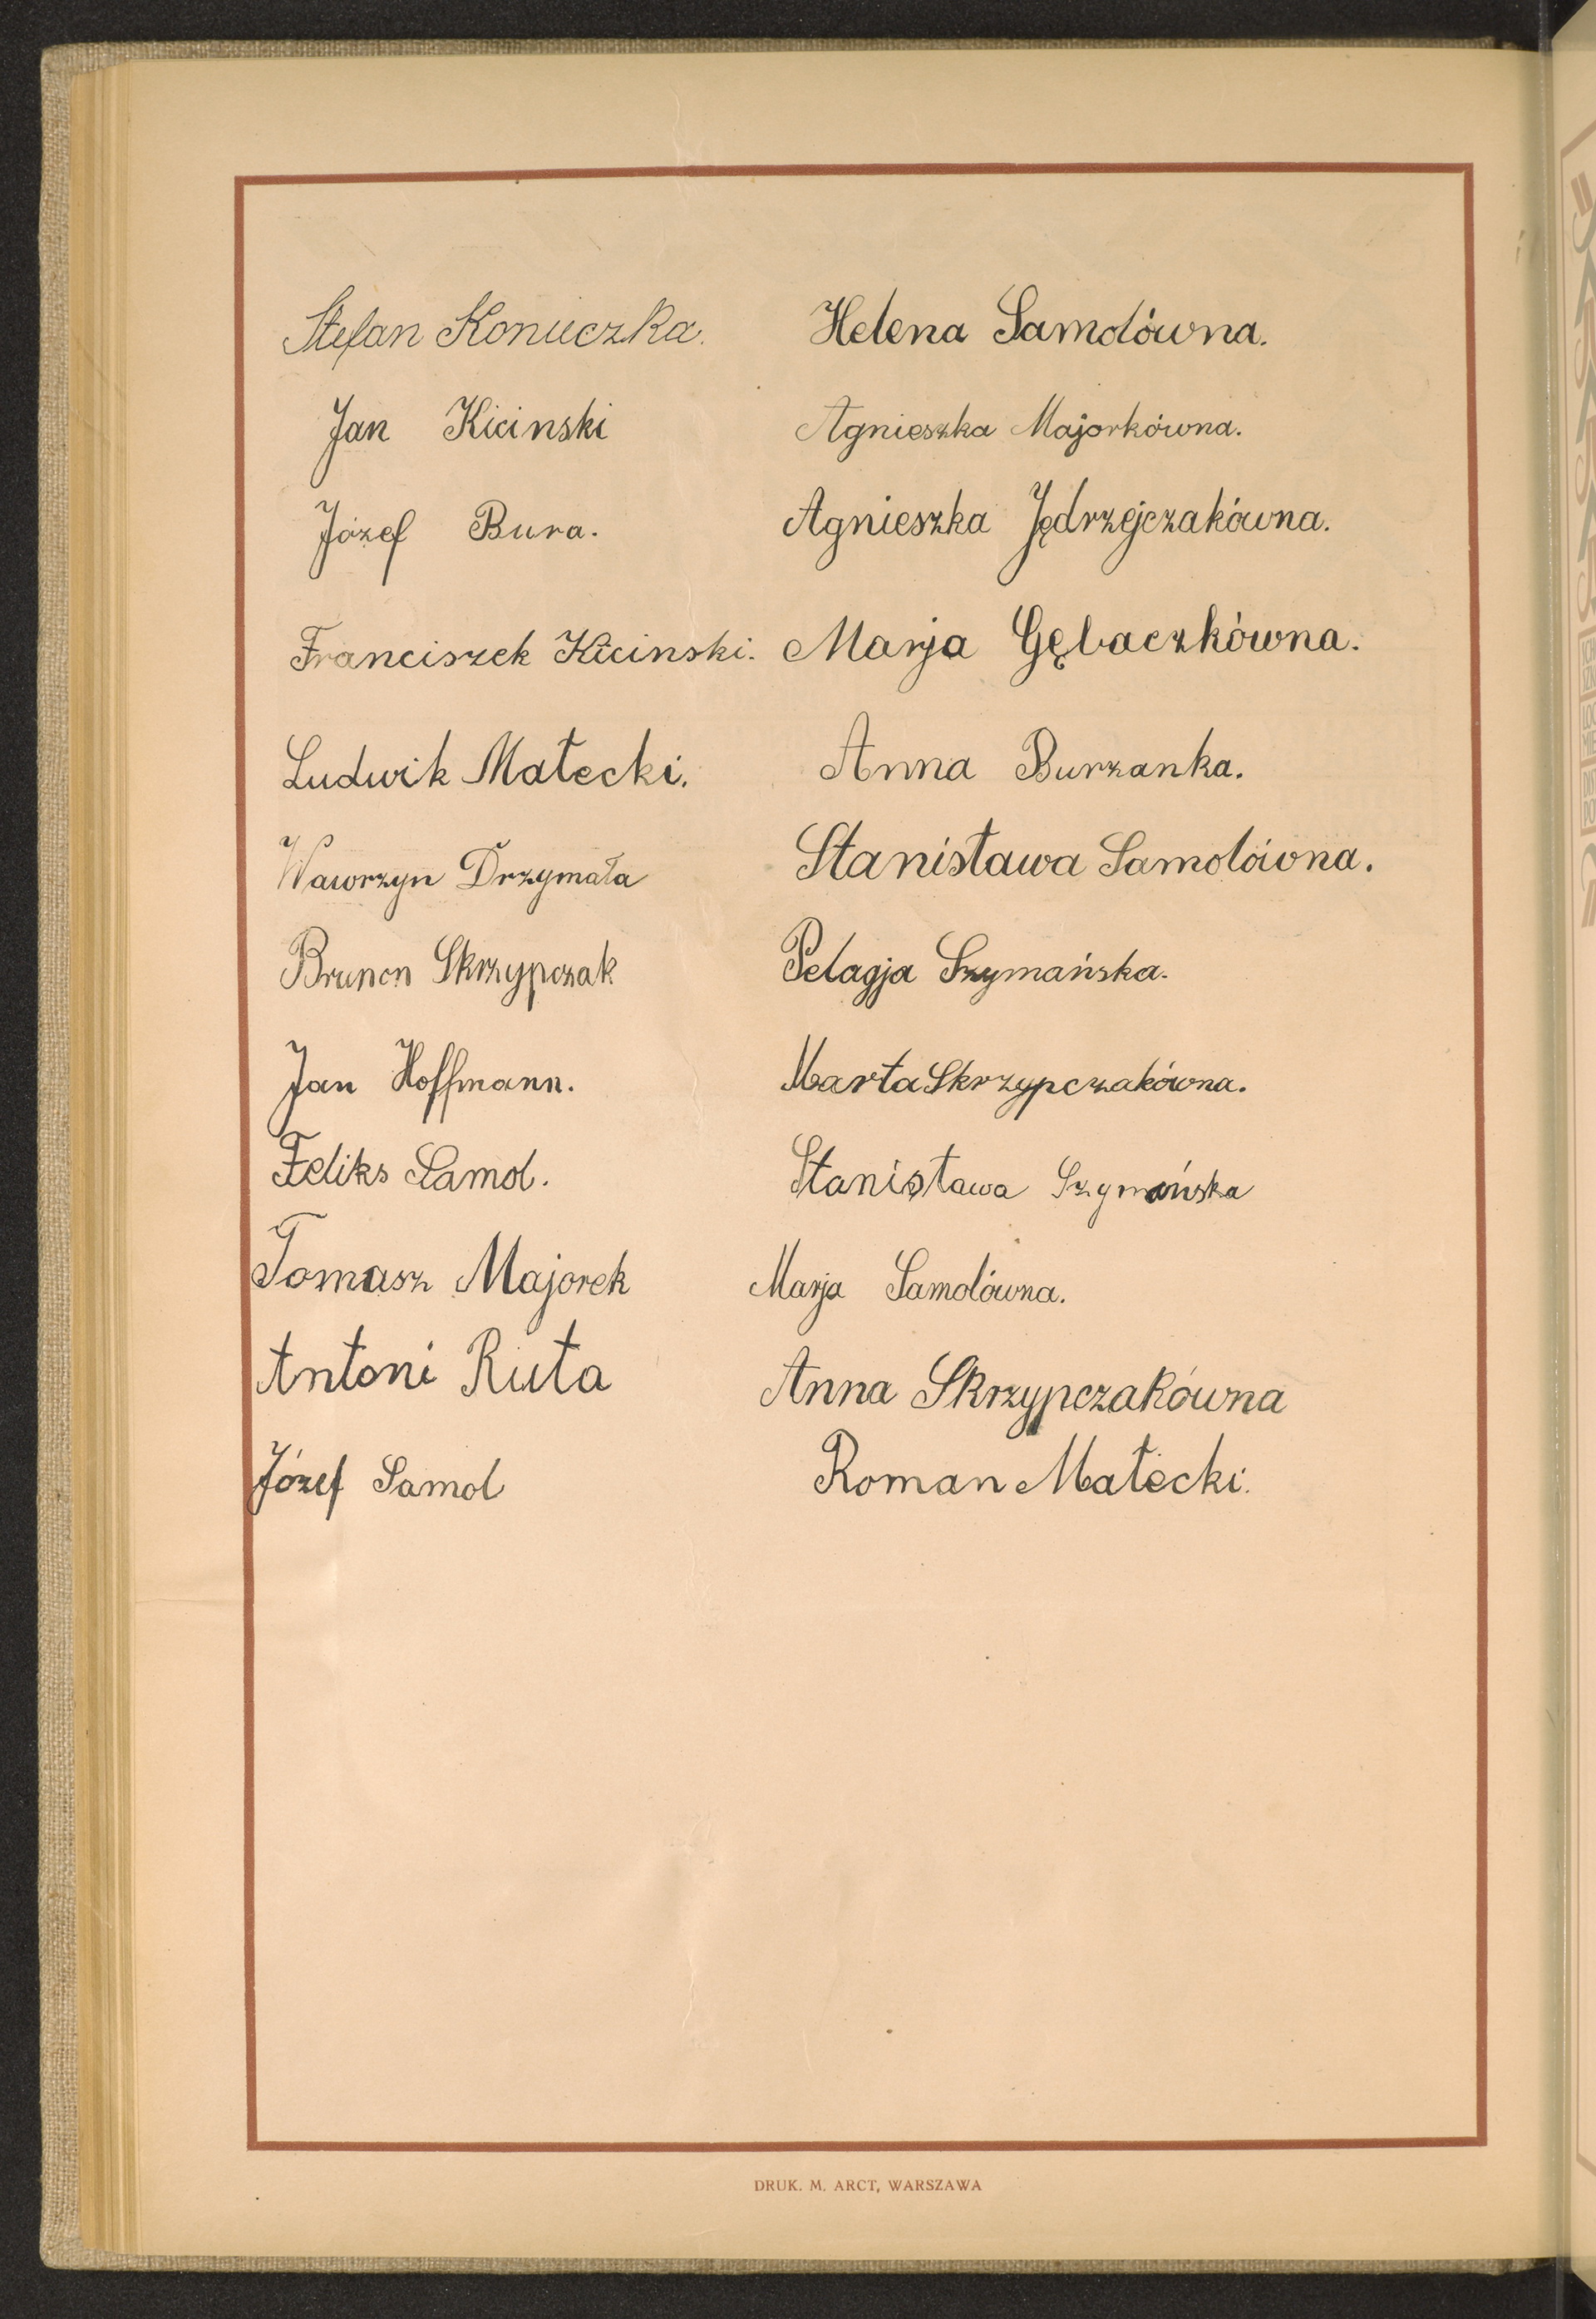 Stefan Konieczka.
Jan Kicinski
Józef Bura.
Franciszek Kicinski.
Ludwik Małecki.
Wawrzyn Drzymała
Brunon Skrzypczak
Jan Hoffmann.
Feliks Samol.
Tomasz Majorek
Antoni Ruta
Józef Samol
Helena Samolówna.
Agnieszka Majorkówna.
Agnieszka Jędrzejczakówna.
Marja Gębaczkówna.
Anna Burzanka.
Stanisława Samolówna.
Pelagja Szymańska.
Marta Skrzypczakówna.
Stanisława Szymańska
Marja Samolówna.
Anna Skrzypczakówna
Roman Małecki.
DRUK. M. ARCT, WARSZAWA